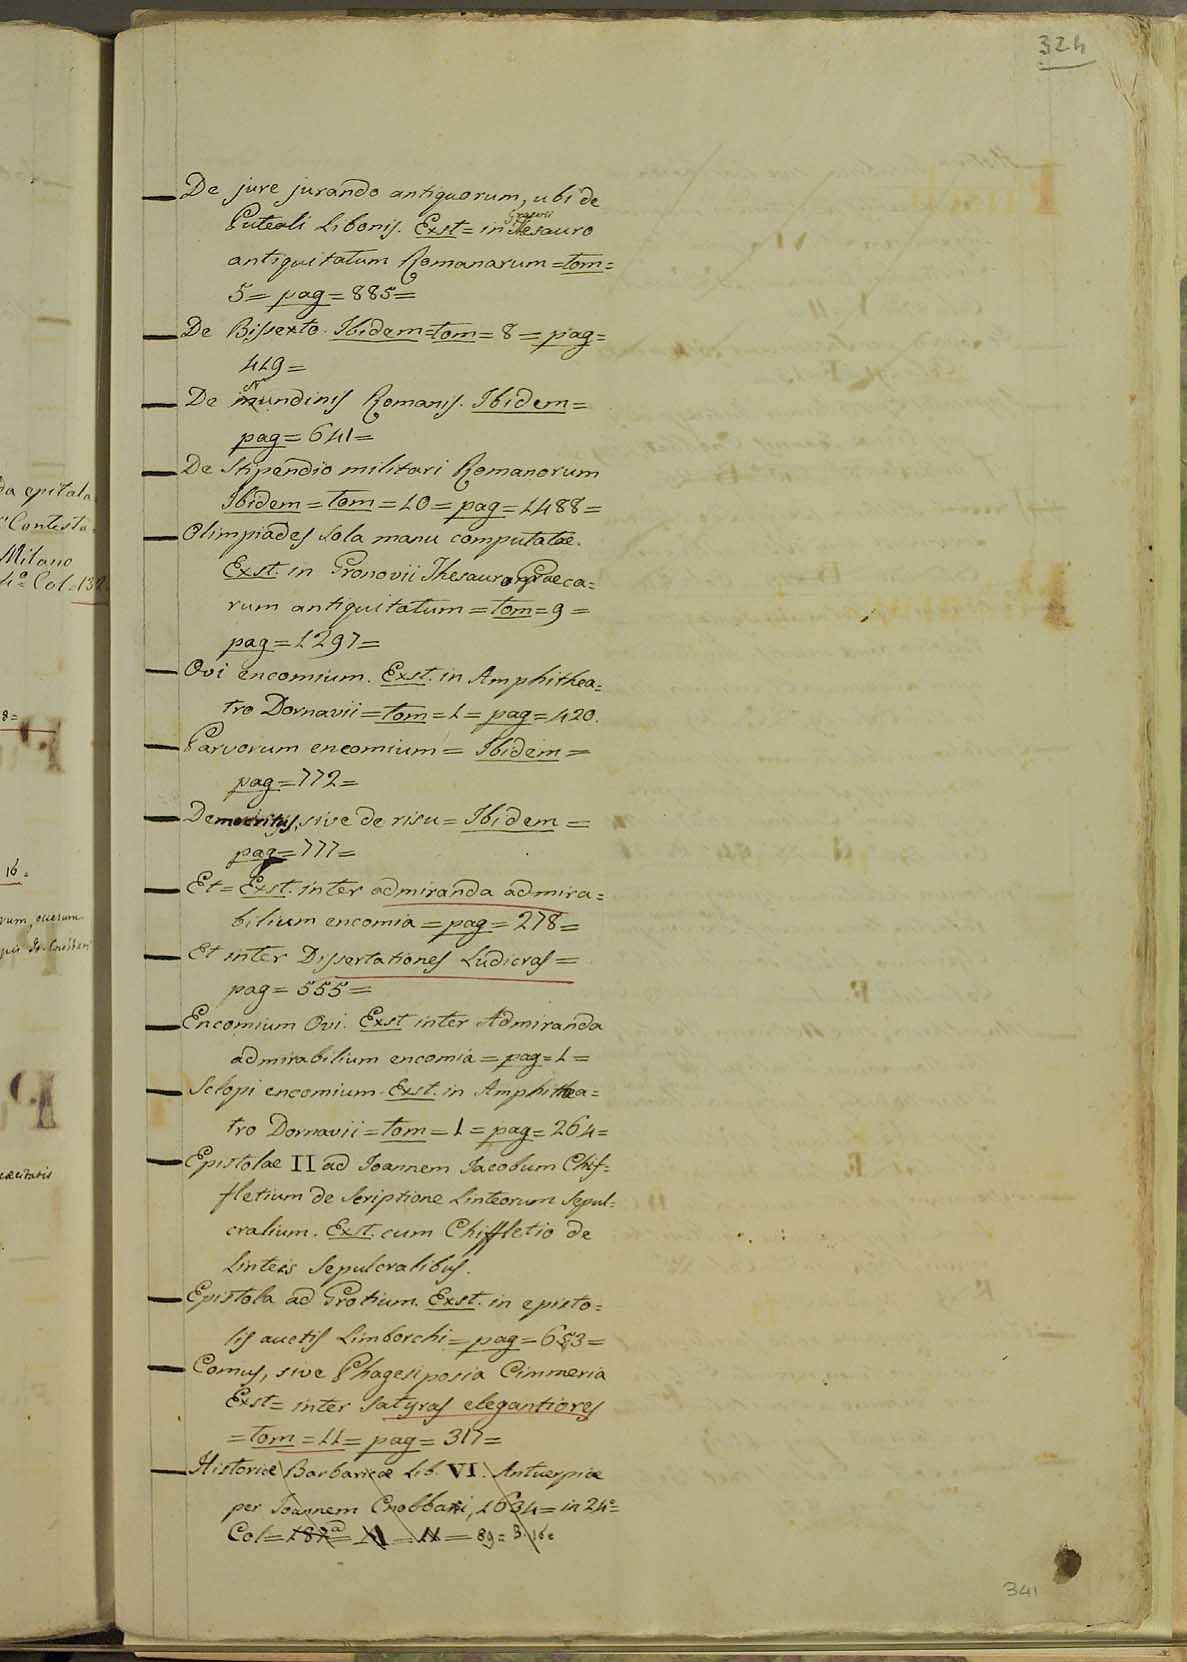 324
De jure jurando antiquorum, ubi de
Puteali Libonis. Exst = in Grævii Thesauro
antiquitatum Romanarum = tom =
5 = pag = 885 =
De Bissexto. Ibidem = tom = 8 = pag =
419 =
De Nundinis Romanis. Ibidem =
pag = 641 =
De Stipendio militari Romanorum
Ibidem = tom = 10 = pag = 1488 =
Olimpiades sola manu computatae.
Exst. in Gronovii Thesauro Graeca=
rum antiquitatum = tom = 9 =
pag = 1297 =
Ovi encomium. Exst. in Amphithea=
tro Dornavii = tom = 1 = pag = 420.
Parvorum encomium = Ibidem =
pag = 772 =
Democritus, sive de risu = Ibidem =
pag = 777 =
Et = Exst. inter admiranda admira=
bilium encomia = pag = 278 =
Et inter Dissertationes Ludicras =
pag = 555 =
Encomium Ovi. Exst inter Admiranda
admirabilium encomia = pag = 1 =
Sclopi encomium. Exst. in Amphithea=
tro Dornavii = tom = 1 = pag = 264 =
Epistolae II ad Joannem Jacobum Chif=
fletium de Scriptione Linteorum Sepul=
cralium. Exst. cum Chiffletio de
Linteis Sepulcralibus.
Epistola ad Grotium. Exst. in episto=
lis auctis Limborchi = pag = 683 =
Comus, sive Phagesiposia Cimmeria
Exst = inter Satyras elegantiores
= tom = 11 = pag = 317 =
Historiæ Barbaricæ Lib. VI. Antuerpiæ
per Joannem Cnobbari, 1634 = in 24.° =
Col = 187ª = = 11 = 89 = B. 16.
341
da epitala
Contesta=
Milano
4.° Col = 132
8 =
16 =